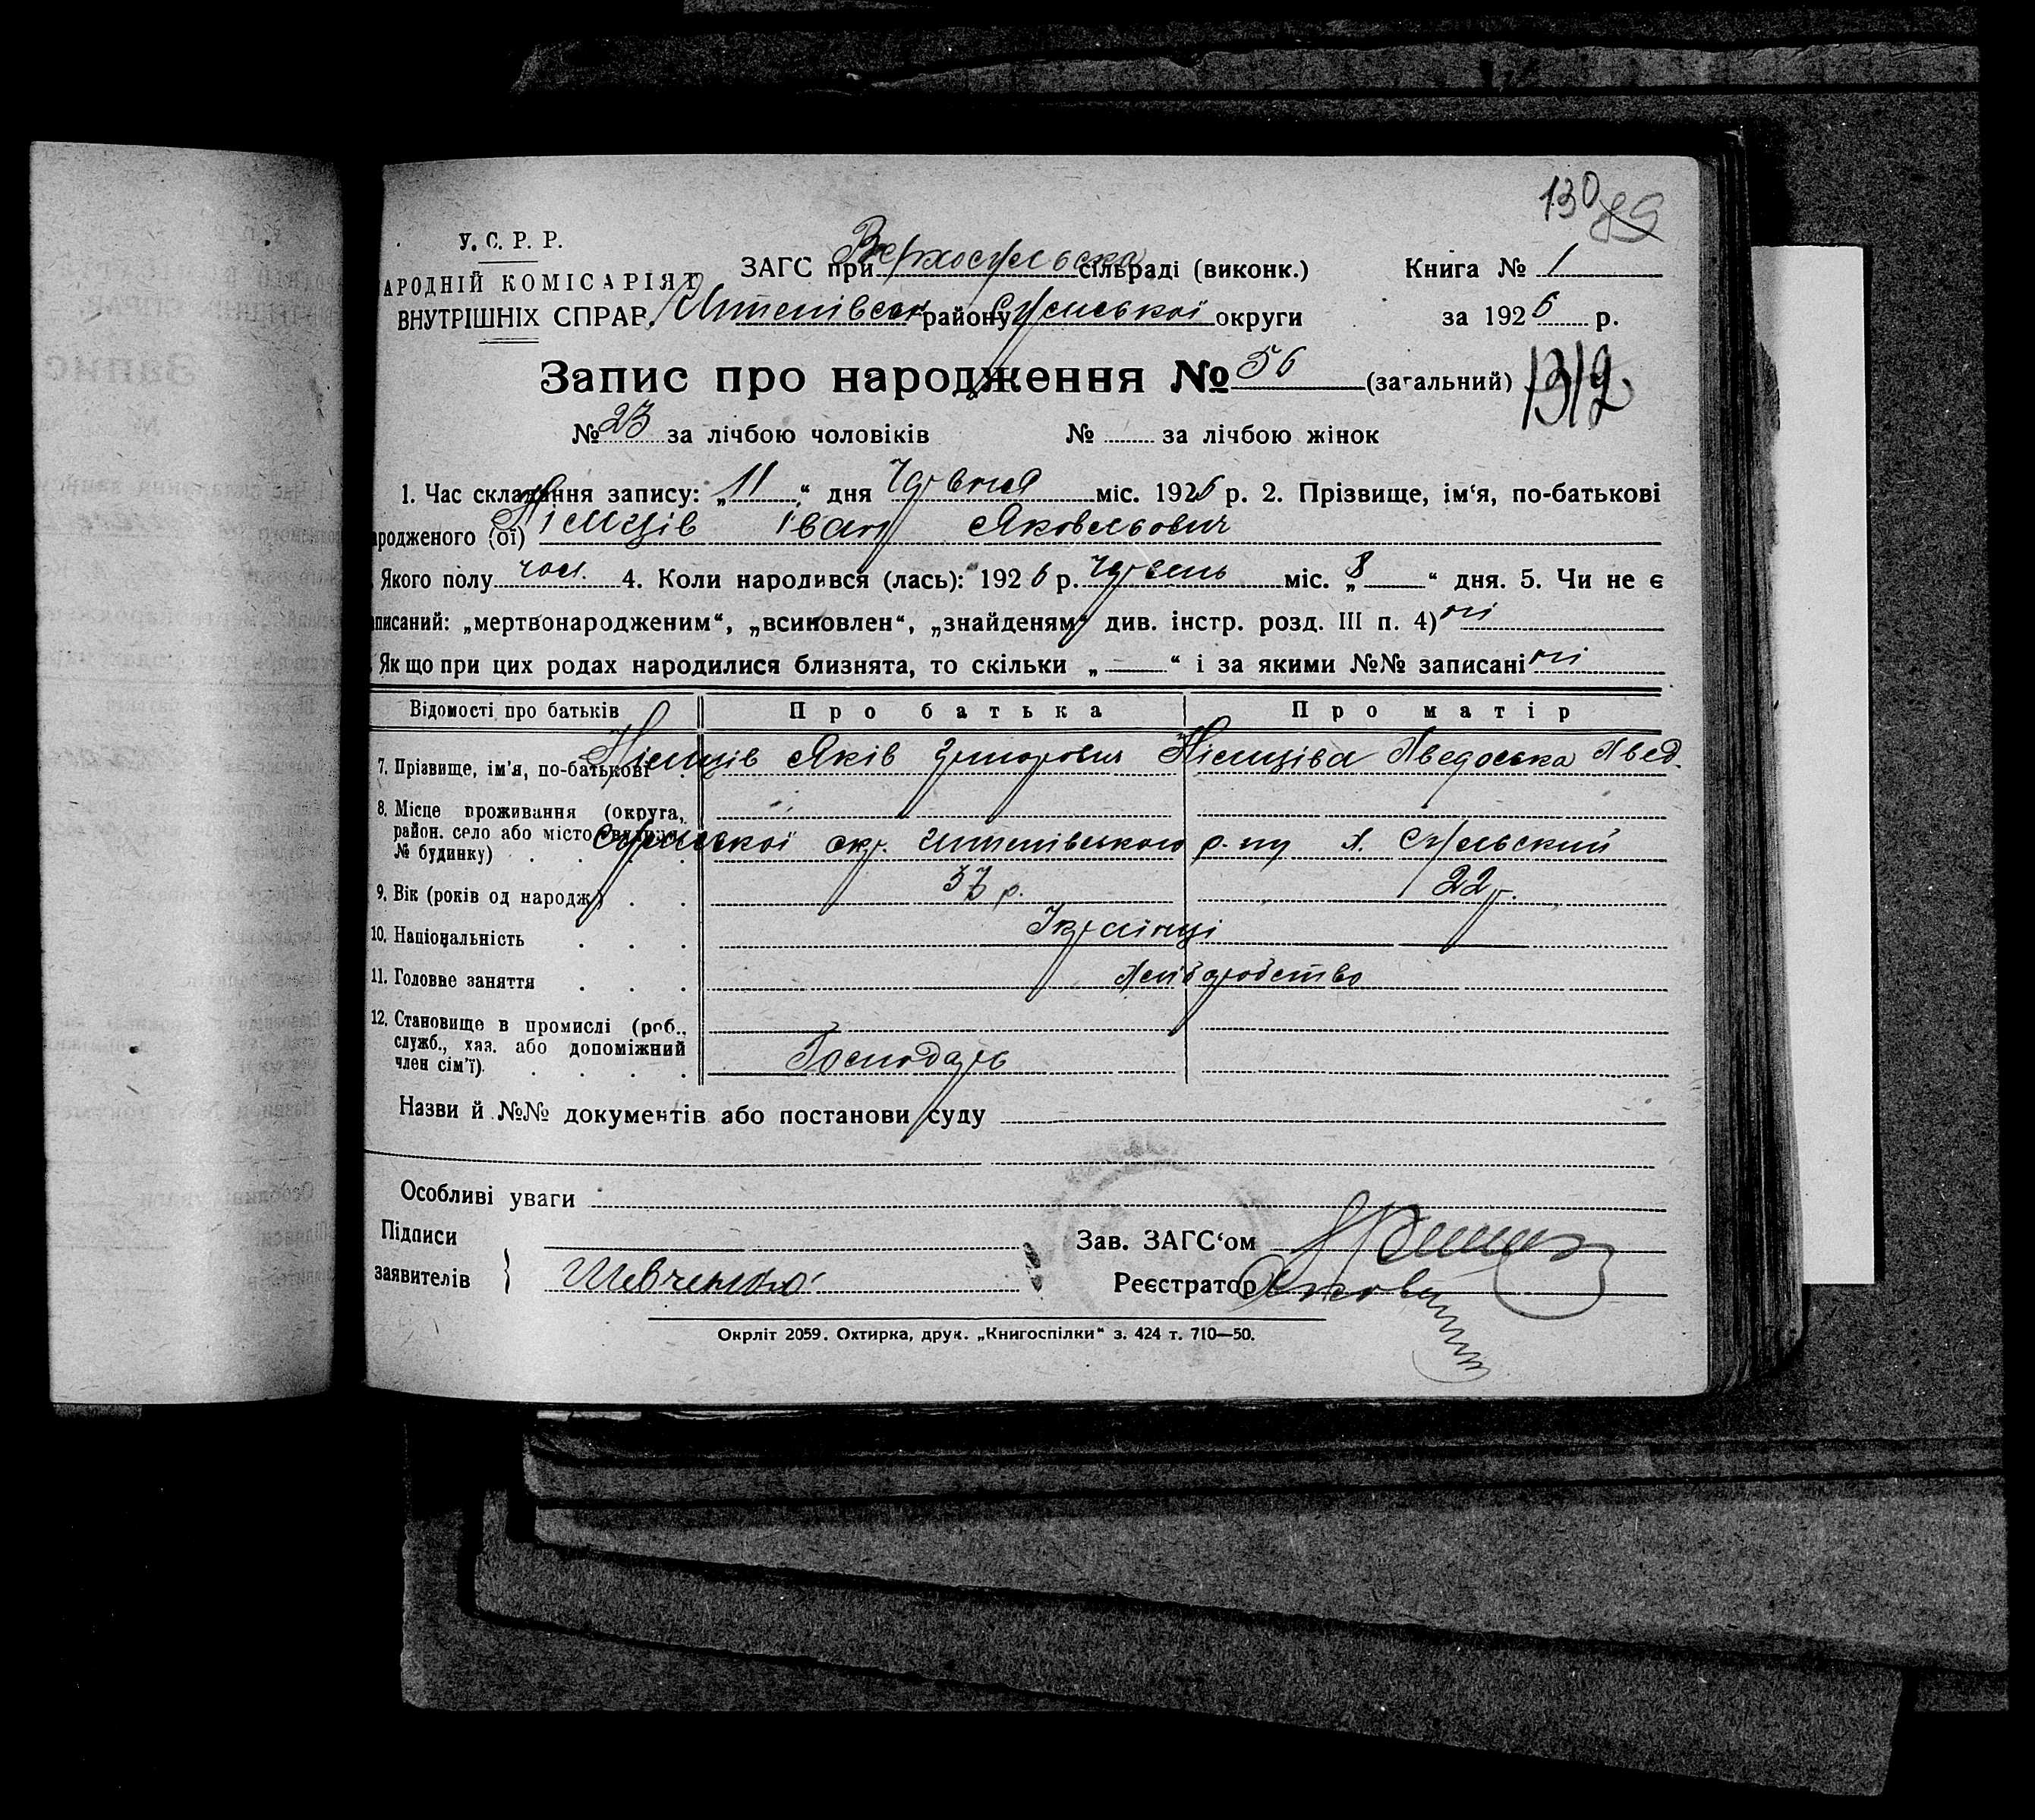 130 89
У. С. Р. Р.
АРОДНІЙ КОМІСАРІЯТ
ВНУТРІШНІХ СПРАВ.
ЗАГС при Верхосульска сільраді (виконк.) Книга № 1
Штепівськ району Сумської округи за 1926 р.
Запис про народження № 56 (загальний) 1312.
№ 23 за лічбою чоловіків № за лічбою жінок
1. Час складання запису: „11“ дня Червня міс. 1926 р. 2. Прізвище, ім‘я, по-батькові
ародженого (ої) Німців Іван Яковльович
Якого полу чол. 4. Коли народився (лась): 1926 р. Червень міс. „8“ дня. 5. Чи не є
аписаний: „мертвонародженим“, „всиновлен“, „знайденям“ див. інстр. розд. III п. 4) ні
Якщо при цих родах народилися близнята, то скільки „ “ і за якими №№ записані ні
Відомості про батьків Про батька Про матір
7. Прізвище, ім'я, по-батькові Німців Яків Григорович Німціва Явдоська Явед.
8. Місце проживання (округа,
район. село або місто, вулиця,
№ будинку) Сумської окр. Штепівського р. х. Сульский
9. Вік (років од народж.) 33 р. 22 р.
10. Національність Українці
11. Головне заняття Хліборобство
12. Становище в промислі (роб.,
служб., хаз. або допоміжний
член сім'ї). Господарь
Назви й №№ документів або постанови суду
Особливі уваги
Підписи
заявителів } Шевченко
Зав. ЗАГС‘ом
Реєстратор
Окрліт 2059. Охтирка, друк. „Книгоспілки“ з. 424 т. 710—50.